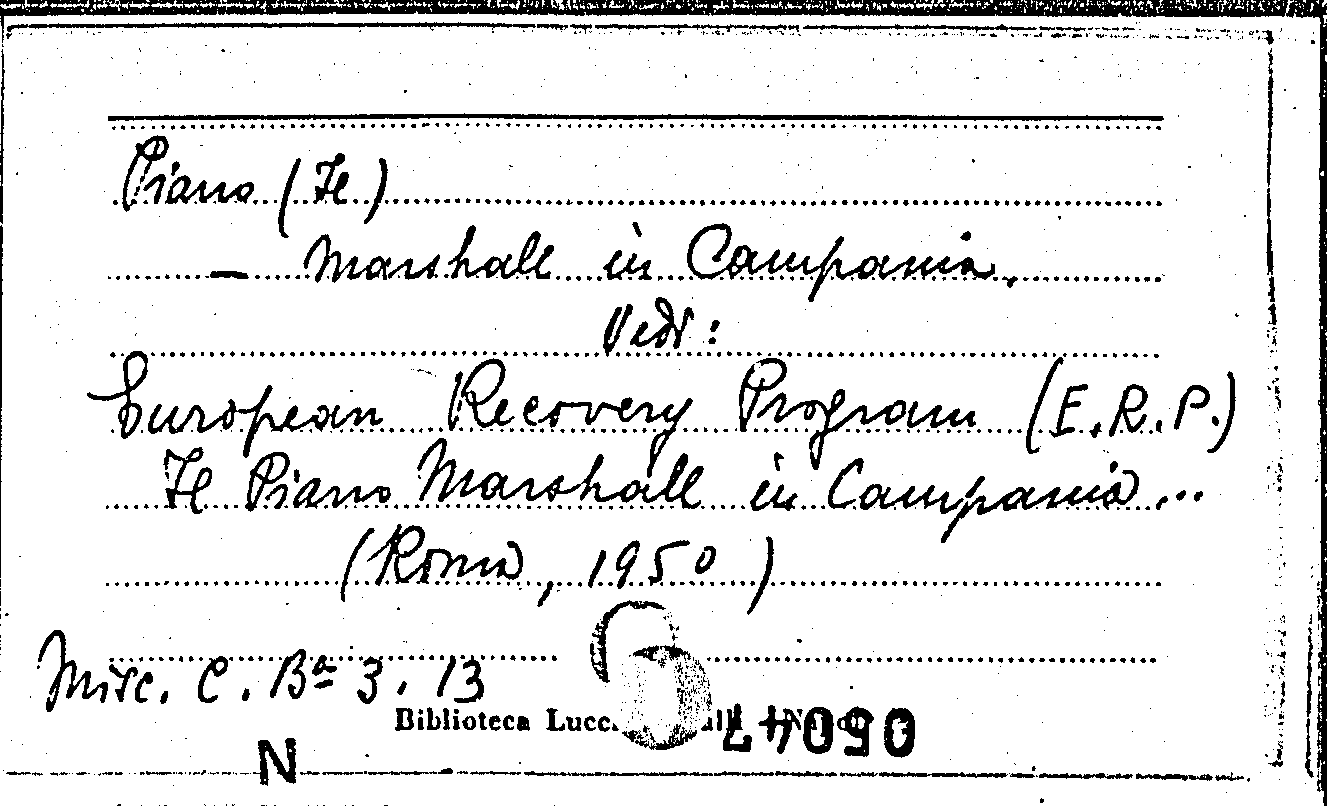 Piano (Il)
— Marshall in Campania.
Vedi:
European Recovery Program (E.R.P.)
Il Piano Marshall in Campania...
(Roma, 1950)
Misc. C. Bª 3. 13
Biblioteca
05047
N